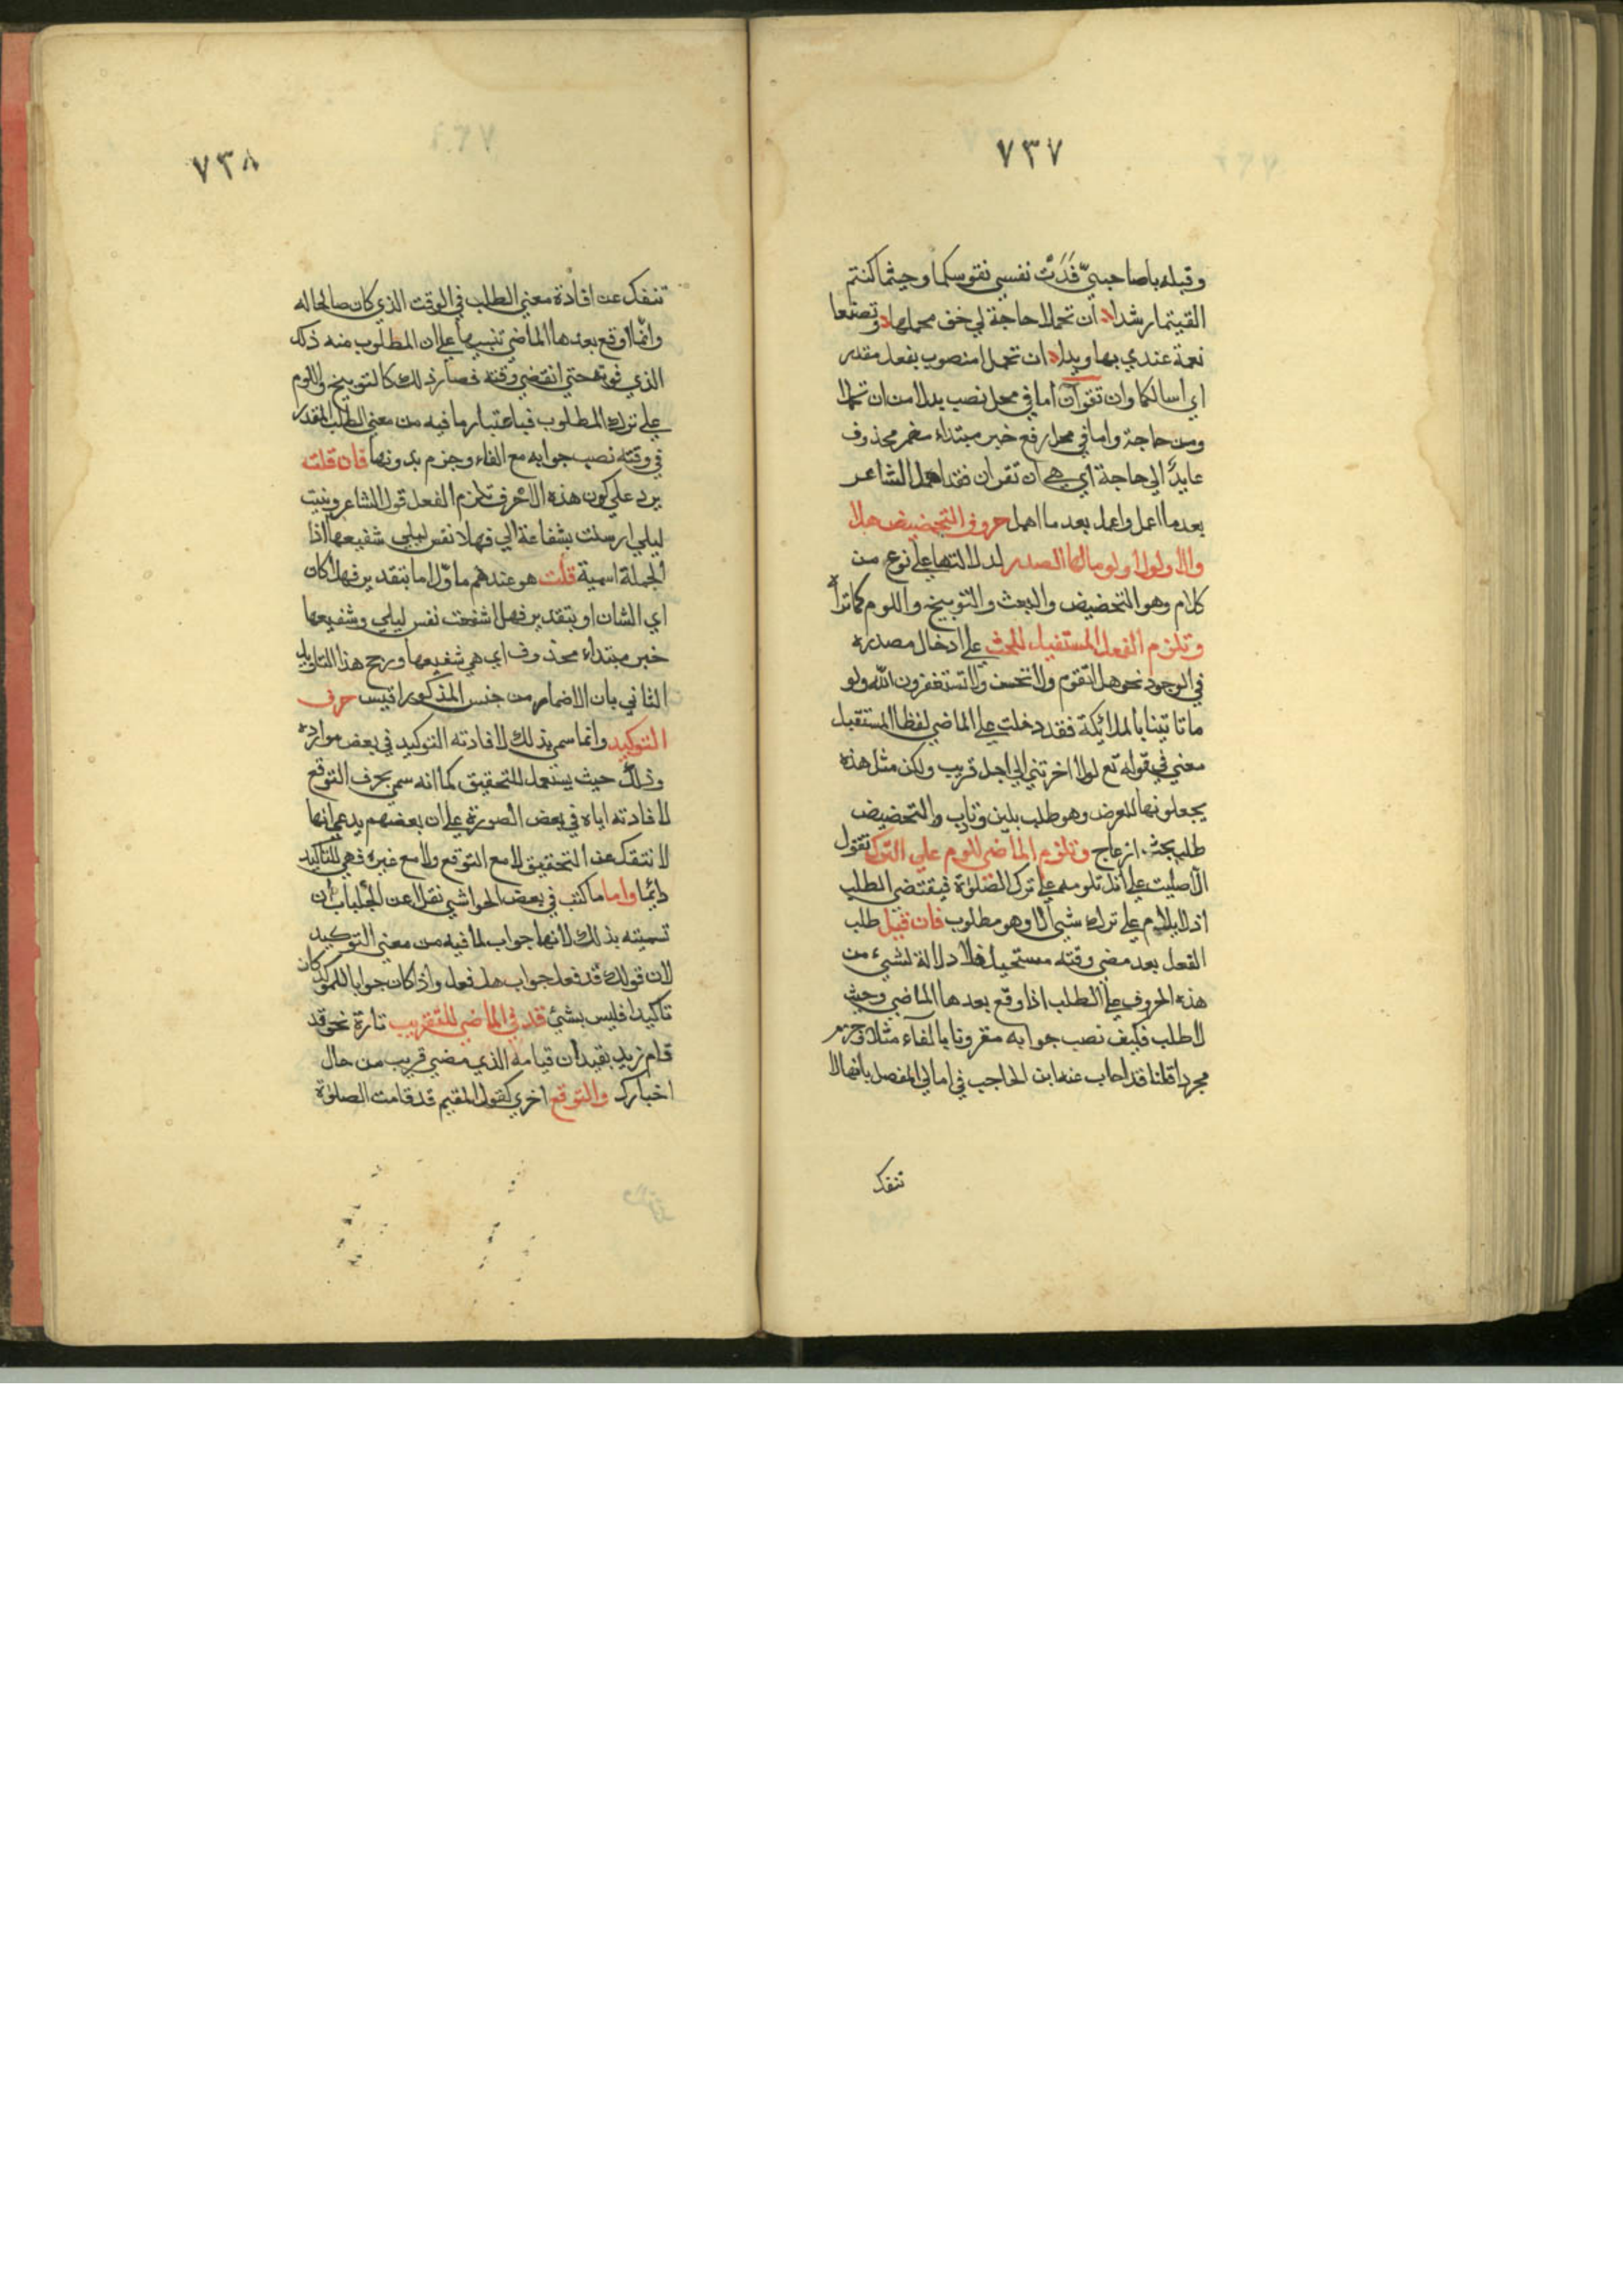 ٧٣٧
وقبله يا صاحبيّ فَدَتْ نفسي نفوسكما وحيثما كنتم
القيتما رشدا ان تحملا حاجة لي خف محملها وتصنعا
نعمة عندي بها ويدا ان تحملا منصوب بفعل مقدر
اي اسالكما وان تقرآن اما في محل نصب بدلا من ان تحملا
ومن حاجة واما في محل رفع خبر مبتداء مضمر محذوف
عايد الي حاجة اي هي ان تقرآن فقد اهمل الشاعر
بعد ما اعمل واعمل بعد ما اهمل حروف التحضيض هلا
والا ولولا ولوما لها الصدر لدلالتها علي نوع من
كلام وهو التحضيض والبعث والتوبيخ واللوم كما تراه
وتلزم الفعل المستقبل للحث علي ادخال مصدره
في الوجود نحو هلا تقوم والا تحسن والا تستغفرون الله ولو
ما تاتينا بالملائكة فقد دخلت علي الماضي لفظا المستقبل
معني في قوله تع لولا اخرتني الي اجل قريب ولكن مثل هذه
يجعلونها للعرض وهو طلب بلين وتاب والتحضيض
طلب بحث وازعاج وتلزم الماضي للوم علي الترك تقول
الا صليت علي انك تلومه علي ترك الصلوة فيقتضي الطلب
اذ لا يلام علي ترك شيء الا وهو مطلوب فان قيل طلب
الفعل بعد مضي وقته مستحيل فلا دلالة لشيء من
هذه الحروف علي الطلب اذا وقع بعدها الماضي وحيث
لا طلب فكيف نصب جوابه مقرونا بالفاء مثلا وجزم
مجردا قلنا قد اجاب عنه ابن الحاجب في امالي المفصل بانها لا
تنفك
٧٣٨
تنفك عن افادة معني الطلب في الوقت الذي كان صالحا له
وانما اوقع بعدها الماضي تنبيها علي ان المطلوب منه ذلك
الذي فوته حتي انقضي وقته فصار ذلك كالتوبيخ واللوم
علي ترك المطلوب فباعتبار ما فيه من معني الطلب المقدر
في وقته نصب جوابه مع الفاء وجزم بدونها فان قلت
يرد علي كون هذه الاحرف تلزم الفعل قول الشاعر ونبئت
ليلي ارسلت بشفاعة الي فهلا نفس ليلي شفيعها اذا
الجملة اسمية قلت هو عندهم ماوّل اما بتقدير فهلا كان
اي الشان او بتقدير فهلا شفعت نفس ليلي وشفيعها
خبر مبتداء محذوف اي هي شفيعها ورجح هذا التاويل
الثاني بان الاضمار من جنس المذكور اقيس حرف
التوكيد وانما سمي بذلك لافادته التوكيد في بعض موارده
وذلك حيث يستعمل للتحقيق كما انه سمي بحرف التوقع
لافادته اياه في بعض الصورة علي ان بعضهم يدعي انها
لا تنفك عن التحقيق لا مع التوقع ولا مع غيره فهي للتاكيد
دايما واما ما كتب في بعض الحواشي نقلا عن الجلباب ان
تسميته بذلك لانها جواب لما فيه من معني التوكيد
لان قولك قد فعل جواب هل فعل واذا كان جوابا للموكد كان
تاكيدا فليس بشئ قد في الماضي للتقريب تارة نحو قد
قام زيد يفيد ان قيامه الذي مضي قريب من حال
اخبارك والتوقع اخري كقول المقيم قد قامت الصلوة